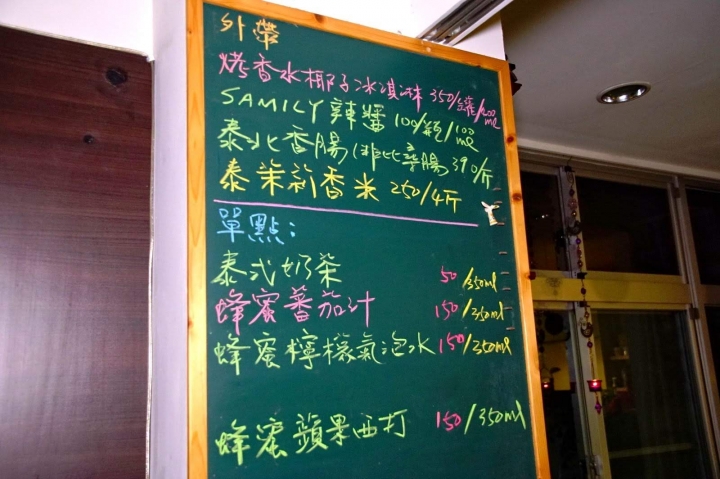 外帶
烤香水椰子冰淇淋 350/罐/200ml
SAMILY 辣醬 100/瓶/100ml
泰北香腸(非比辛腸 390/斤
泰茉莉香米 250/4斤
單點:
泰式奶茶 50/350ml
蜂蜜蕃茄汁 150/350ml
蜂蜜檸檬氣泡水 150/350ml
蜂蜜蘋果西打 150/350ml